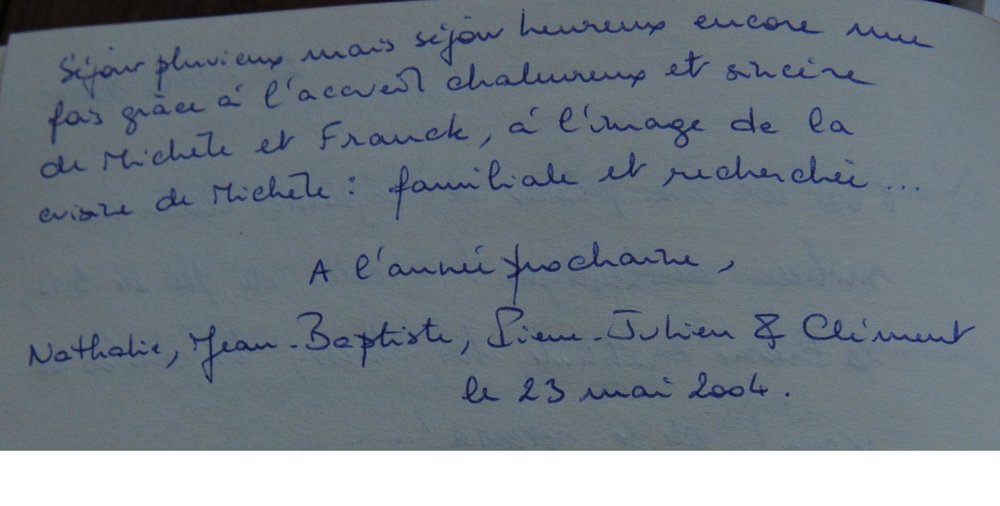 Séjour pluvieux mais séjour heureux encore une
fois grâce à l'accueil chaleureux et sincère
de Michèle et Franck, à l'image de la
cuisine de Michèle : familiale et recherchée...
A l'année prochaine,
Nathalie, Jean-Baptiste, Pierre-Julien & Clément
le 23 mai 2004.